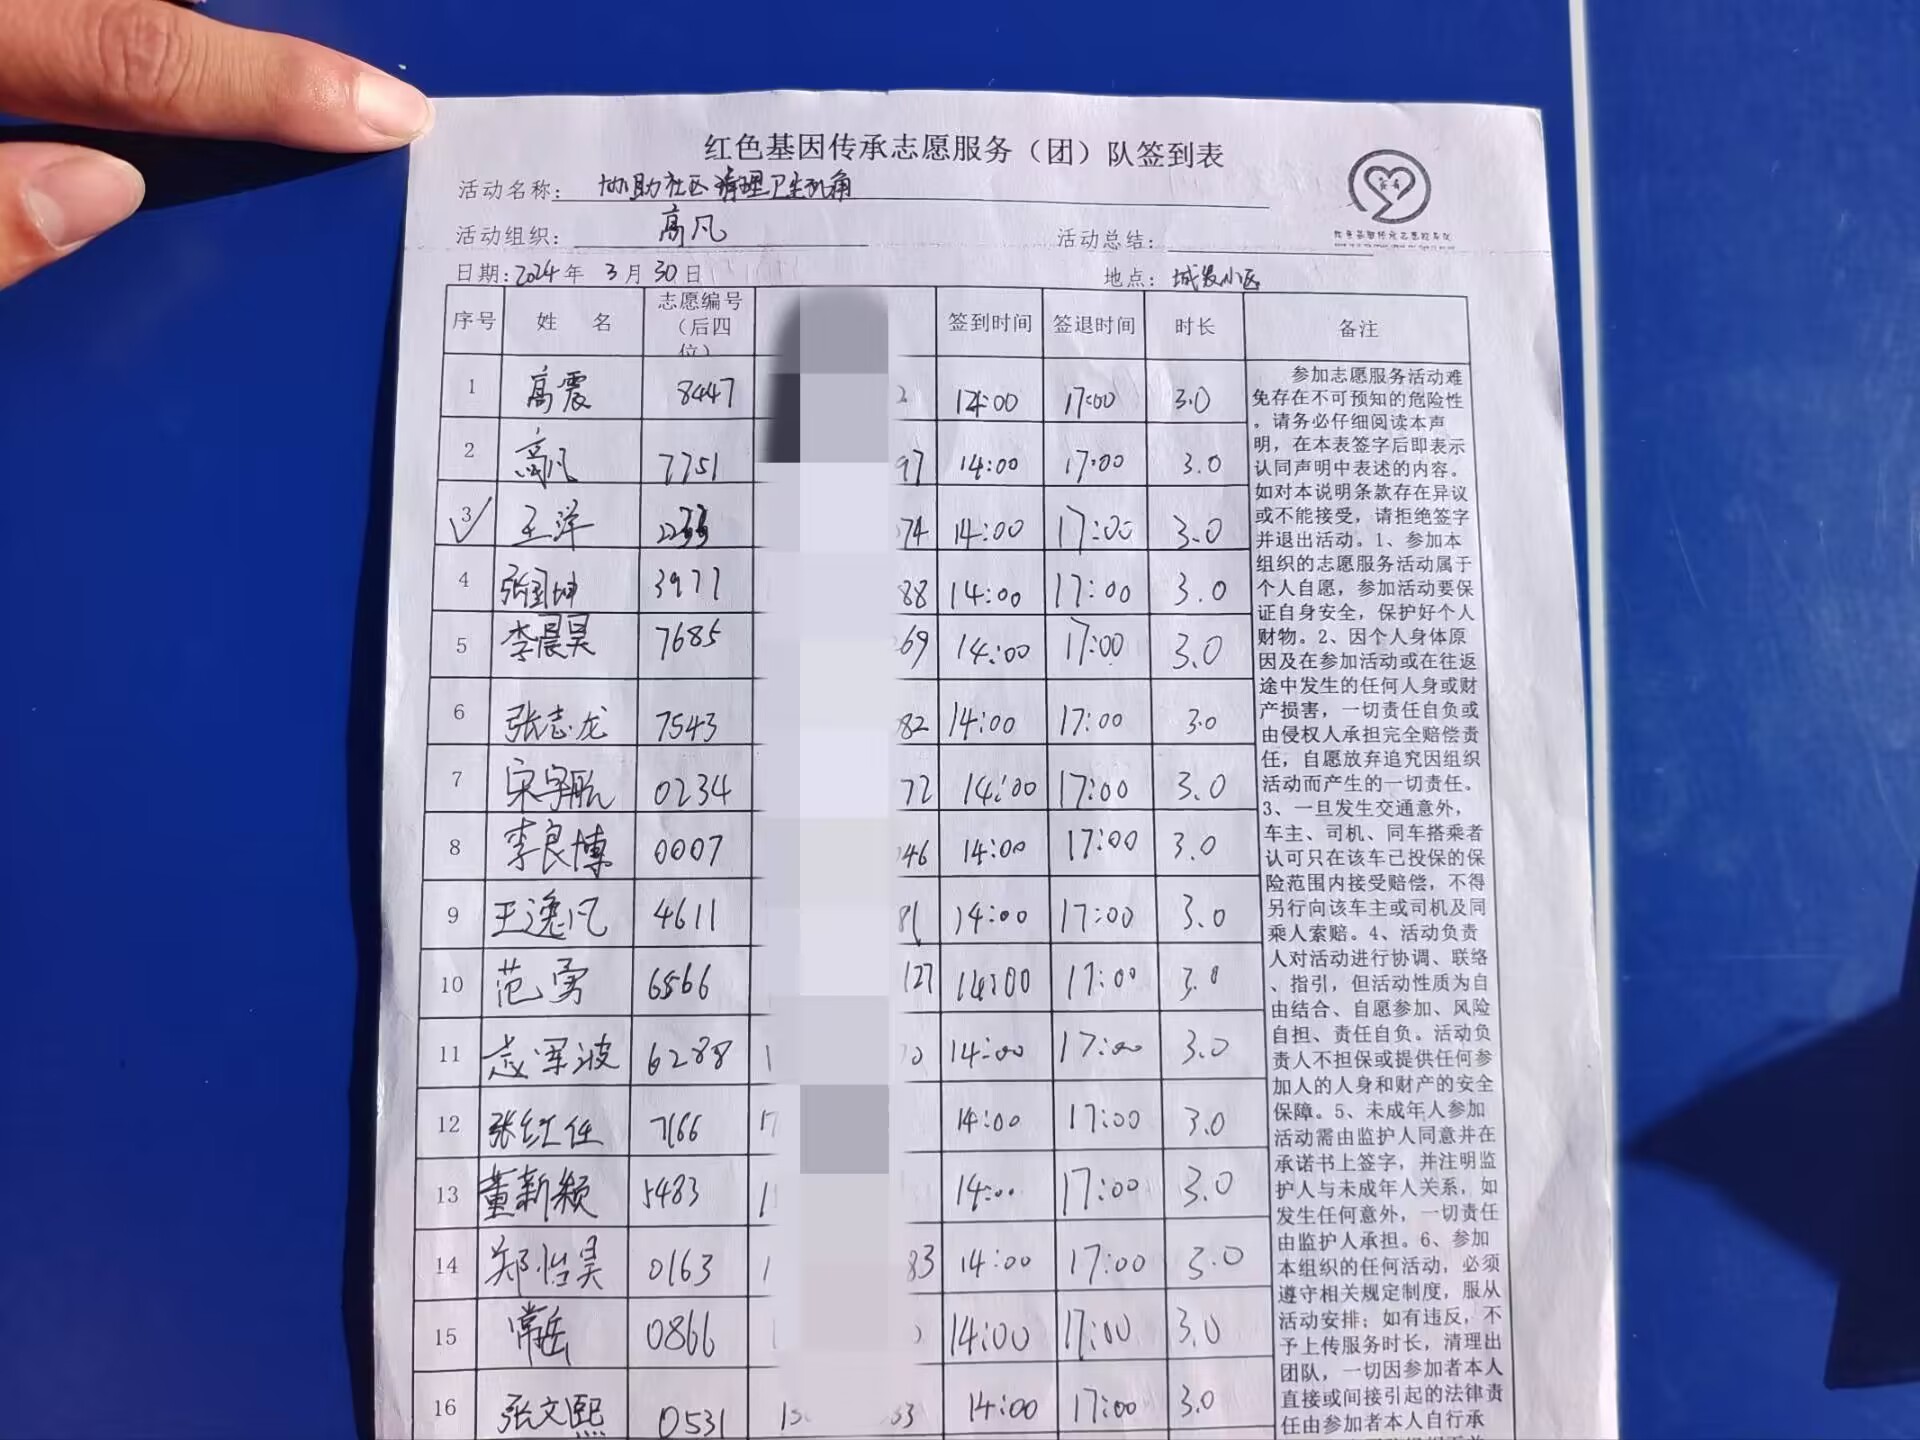 红色基因传承志愿服务（团）队签到表
活动名称： 协助社区清理卫生死角
活动组织： 高凡 活动总结：
日期：2024年 3月30日 地点： 城发小区
序号 姓 名 志愿编号（后四位） 签到时间 签退时间 时长 备注
1 高震 8447 2 14:00 17:00 3.0
2 高凡 7751 97 14:00 17:00 3.0
3 王洋 2233 74 14:00 17:00 3.0
4 张 坤 3977 88 14:00 17:00 3.0
5 李晨昊 7685 69 14:00 17:00 3.0
6 张志龙 7543 82 14:00 17:00 3.0
7 宋宇航 0234 72 14:00 17:00 3.0
8 李良博 0007 46 14:00 17:00 3.0
9 王逸凡 4611 81 14:00 17:00 3.0
10 范勇 6566 127 14:00 17:00 3.0
11 波 6288 1 0 14:00 17:00 3.0
12 张红任 7166 17 14:00 17:00 3.0
13 董新颖 5483 1 14:00 17:00 3.0
14 郑怡昊 0163 1 83 14:00 17:00 3.0
15 常岳 0866 14:00 17:00 3.0
16 张文熙 0531 15 33 14:00 17:00 3.0
参加志愿服务活动难
免存在不可预知的危险性
，请务必仔细阅读本声
明，在本表签字后即表示
认同声明中表述的内容。
如对本说明条款存在异议
或不能接受，请拒绝签字
并退出活动。1、参加本
组织的志愿服务活动属于
个人自愿，参加活动要保
证自身安全，保护好个人
财物。2、因个人身体原
因及在参加活动或在往返
途中发生的任何人身或财
产损害，一切责任自负或
由侵权人承担完全赔偿责
任，自愿放弃追究因组织
活动而产生的一切责任。
3、一旦发生交通意外，
车主、司机、同车搭乘者
认可只在该车已投保的保
险范围内接受赔偿，不得
另行向该车主或司机及同
乘人索赔。4、活动负责
人对活动进行协调、联络
、指引，但活动性质为自
由结合、自愿参加、风险
自担、责任自负。活动负
责人不担保或提供任何参
加人的人身和财产的安全
保障。5、未成年人参加
活动需由监护人同意并在
承诺书上签字，并注明监
护人与未成年人关系，如
发生任何意外，一切责任
由监护人承担。6、参加
本组织的任何活动，必须
遵守相关规定制度，服从
活动安排；如有违反，不
予上传服务时长，清理出
团队，一切因参加者本人
直接或间接引起的法律责
任由参加者本人自行承